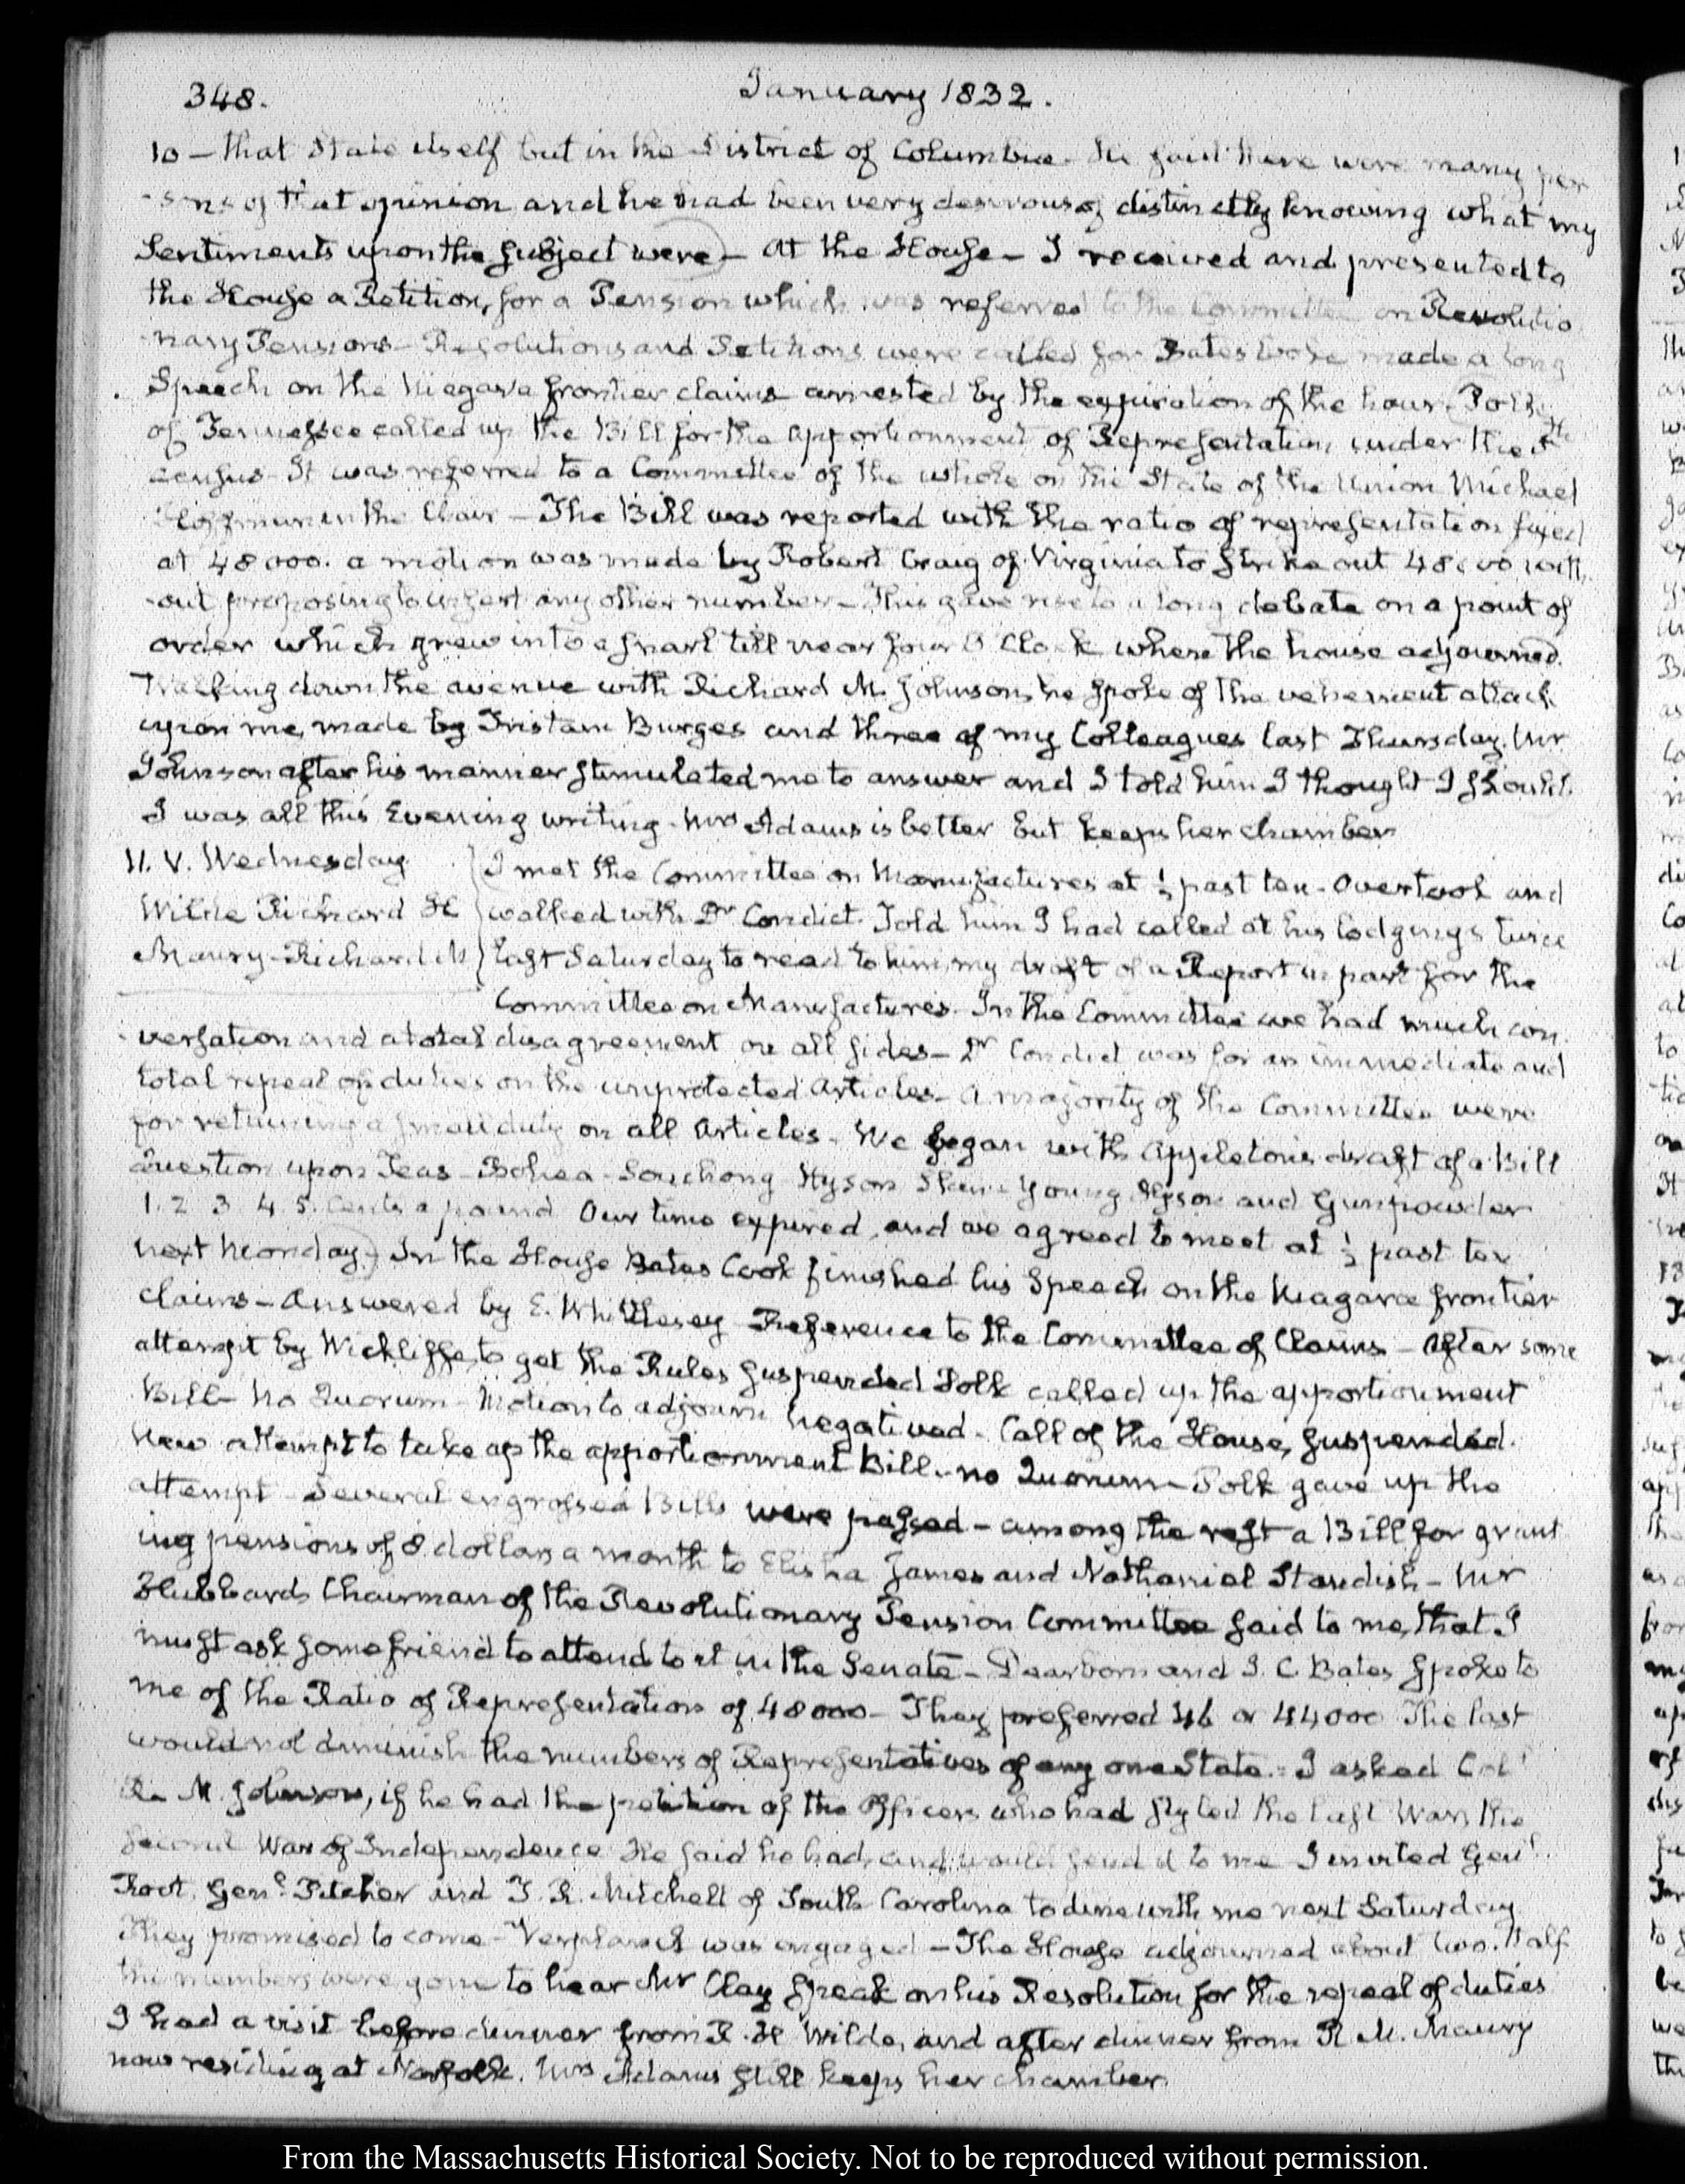 348.
January 1832.
10 — that State itself but in the District of Columbia. He said there were many per
-sons of that opinion and he had been very desirous of distinctly knowing what my
Sentiments upon the subject were — At the House — I received and presented to
the House a Petition, for a Pension which was referred to the Committee on Revolutio
nary Pensions — Resolutions and Petitions were called for Bates Cooke made a long
Speech on the Niagara frontier claims arrested by the expiration of the hour — Polk
of Tennessee called up the Bill for the Apportionment of Representation, under the 5th
census — It was referred to a Committee of the whole on the State of the Union Michael
Hoffman in the Chair — The Bill was reported with the ratio of representation fixed
at 48000. a motion was made by Robert Craig of Virginia to strike out 48000 with
-out proposing to insert any other number — This gave rise to a long debate on a point of
order which grew into a snarl till near four O'Clock when the house adjourned.
Walking down the avenue with Richard M. Johnson, he spoke of the vehement attack
upon me, made by Tristam Burges and three of my Colleagues last Thursday. Mr
Johnson after his manner stimulated me to answer and I told him I thought I should.
I was all this Evening writing. Mrs Adams is better but keeps her chamber
11. V. Wednesday
Wilde Richard H
Maury — Richard M
I met the Committee on Manufactures at ½ past ten — Overtook and
walked with Dr Condict. Told him I had called at his lodgings twice
last Saturday to read to him, my draft of a Report in part for the
Committee on Manufactures. In the Committee we had much con
-versation and a total disagreement on all sides — Dr Condict was for an immediate and
total repeal of duties on the unprotected Articles — A majority of the Committee were
for retaining a small duty on all Articles — We began with Appleton's draft of a Bill
Question upon Teas — Bohea — Souchong Hyson Skin Young Hyson and Gunpowder
1. 2. 3. 4. 5. Cents a pound Our time expired, and we agreed to meet at ½ past ten
next Monday. In the House Bates Cook finished his Speech on the Niagara frontier
claims — Answered by E. Whittlesey Reference to the Committee of Claims — After some
attempt by Wickliffe, to get the Rules suspended Polk called up the apportionment
Bill — No Quorum — Motion to adjourn negatived — Call of the House, suspended.
New attempt to take up the apportionment Bill — no Quorum — Polk gave up the
attempt — Several engrossed Bills were passed — among the rest a Bill for grant
ing pensions of 8 dollars a month to Elisha James and Nathaniel Standish — Mr
Hubbard Chairman of the Revolutionary Pension Committee said to me, that I
must ask some friend to attend to it in the Senate — Dearborn and I. C. Bates spoke to
me of the Ratio of Representation of 48000 — They preferred 46 or 44000 The last
would not diminish the numbers of Representatives of any one State. I asked Coll
R. M. Johnson, if he had the petition of the Officers who had styled the last War, the
Second War of Independence He said he had, and would send it to me I invited Genl.
Root, Genl. Pitcher and T. R. Mitchell of South Carolina to dine with me next Saturday
They promised to come — Verplanck was engaged — The House adjourned about two. Half
the members were gone to hear Mr Clay speak on his Resolution for the repeal of duties
I had a visit before dinner from R. H. Wilde, and after dinner from R. M. Maury
now residing at Norfolk. Mrs Adams still keeps her chamber
From the Massachusetts Historical Society. Not to be reproduced without permission.